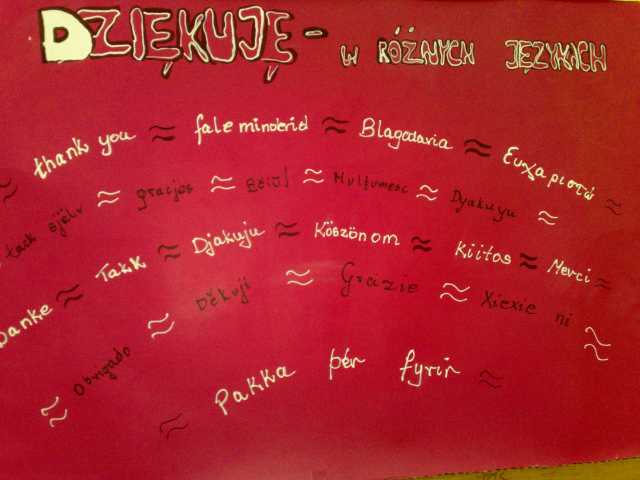 DZIĘKUJĘ - W RÓŻNYCH JĘZYKACH
thank you ≈ faleminderid ≈ Blagodavia ≈ Ευχαριστώ ≈
≈ tack själv ≈ gracjas ≈ ≈ Mulţumesc ≈ Dyakuyu ≈
Danke ≈ Takk ≈ Djakuju ≈ Köszönom ≈ Kiitos ≈ Merci ≈
≈ Obrigado ≈ Děkuji ≈ Grazie ≈ Xiexie ni ≈
≈ Pakka þér fyrir ≈